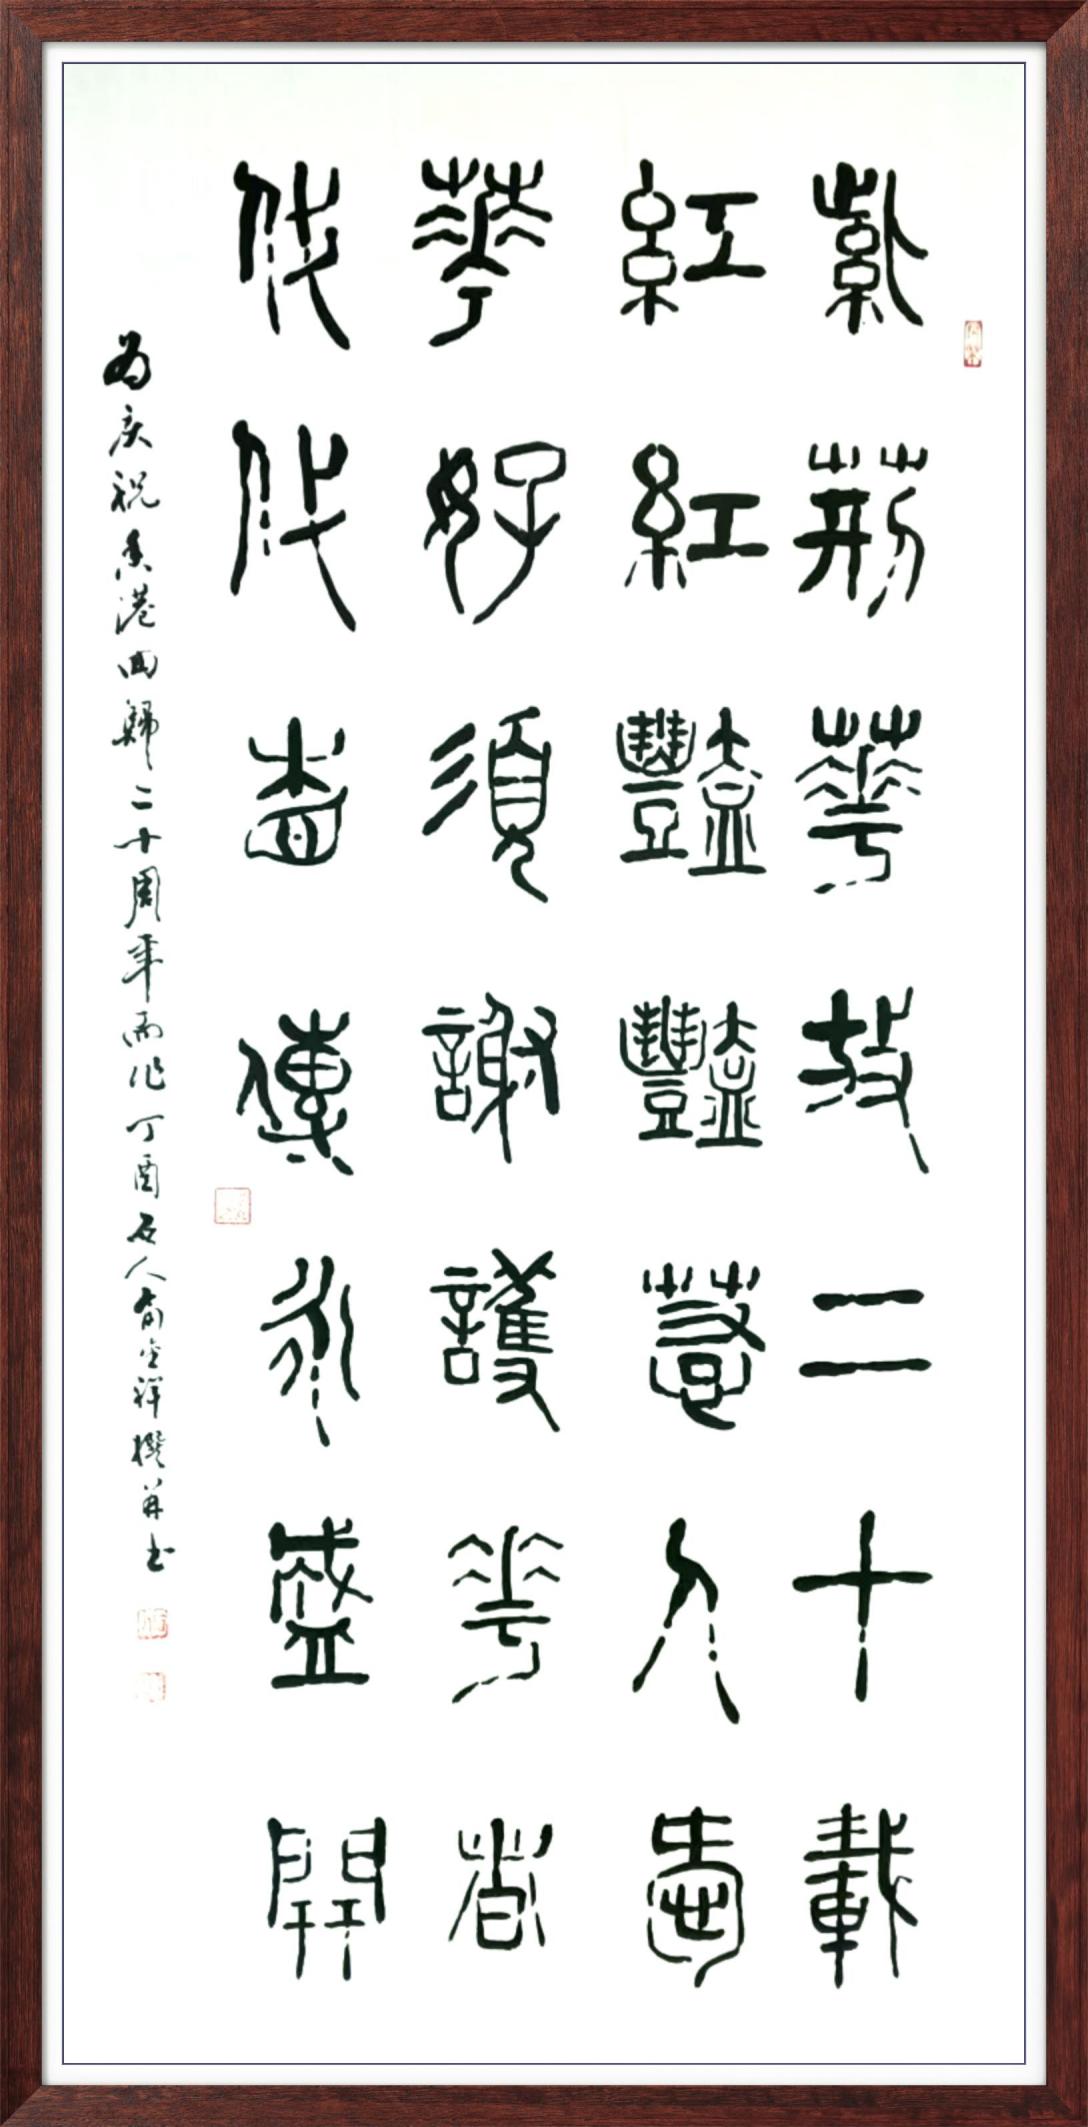 紫荊華放二十載
紅紅豔豔惹人愛
華好須謝護華者
代代相傳永盛開
为庆祝香港回歸二十周年而作丁酉石人祥撰并书